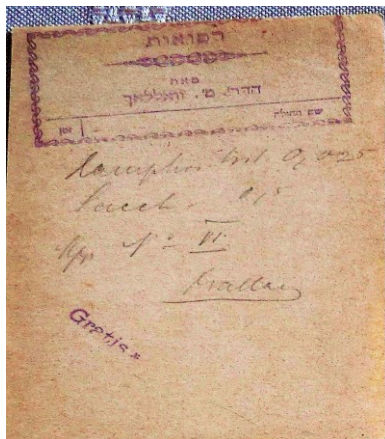 רפואות
מאת
הדר. מ. וואללאך
שם החולה
Camphor. trit. 0,025
Sacch. 0,5
No VI
Wallach
Gratis